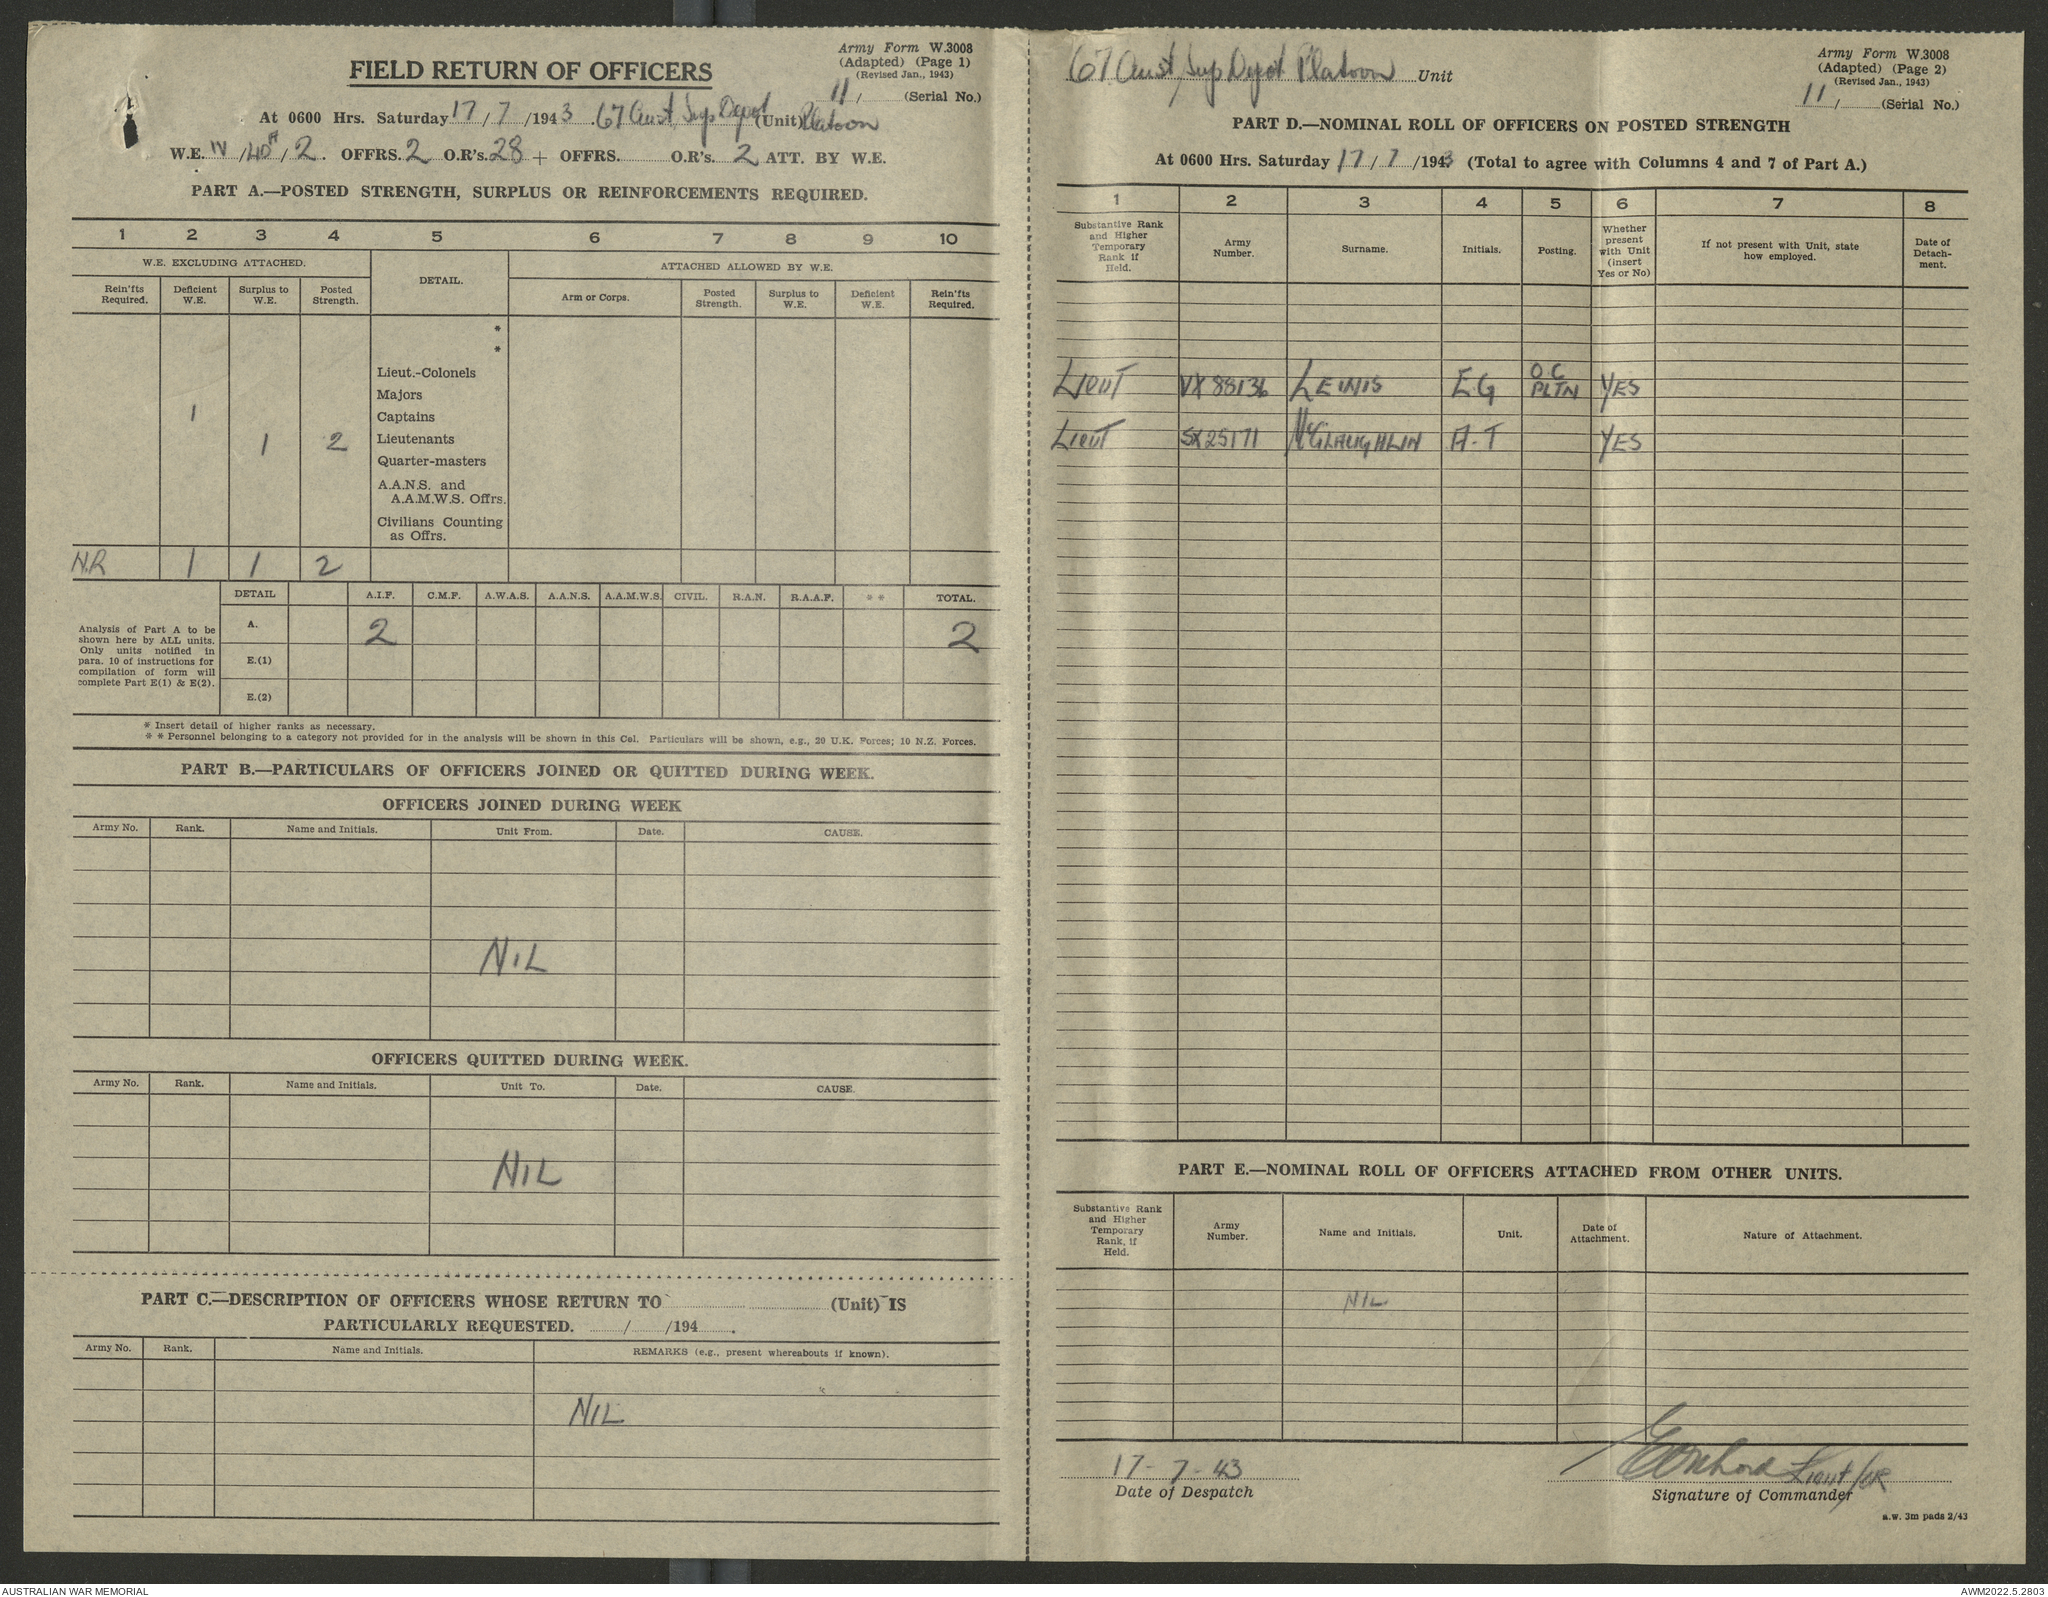 Army Form W.3008
(Adapted) (Page 1)
(Revised Jan., 1943)
FIELD RETURN OF OFFICERS
11/ (Serial No.)
At 0600 Hrs. Saturday 17/7/1943 67 Aust, Sup Depot (Unit) Platoon
W.E. IV/40A/2. OFFRS. 2 O.R's. 28 + OFFRS. O.R's. 2 ATT. BY W.E.
PART A.—POSTED STRENGTH, SURPLUS OR REINFORCEMENTS REQUIRED.
1 2 3 4 5 6 7 8 9 10
W.E. EXCLUDING ATTACHED. DETAIL. ATTACHED ALLOWED BY W.E.
Rein'fts Required. Deficient W.E. Surplus to W.E. Posted Strength. Arm or Corps. Posted Strength. Surplus to W.E. Deficient W.E. Rein'fts Required.
*
*
Lieut.-Colonels
Majors
1 Captains
1 2 Lieutenants
Quarter-masters
A.A.N.S. and
A.A.M.W.S. Offrs.
Civilians Counting
as Offrs.
N.R 1 1 2
DETAIL A.I.F. C.M.F. A.W.A.S. A.A.N.S. A.A.M.W.S. CIVIL. R.A.N. R.A.A.F. * * TOTAL.
Analysis of Part A to be
shown here by ALL units.
Only units notified in
para. 10 of instructions for
compilation of form will
complete Part E(1) & E(2).
A. 2 2
E.(1)
E.(2)
* Insert detail of higher ranks as necessary.
* * Personnel belonging to a category not provided for in the analysis will be shown in this Col. Particulars will be shown, e.g., 20 U.K. Forces; 10 N.Z. Forces.
PART B.—PARTICULARS OF OFFICERS JOINED OR QUITTED DURING WEEK.
OFFICERS JOINED DURING WEEK
Army No. Rank. Name and Initials. Unit From. Date. CAUSE.
NIL
OFFICERS QUITTED DURING WEEK.
Army No. Rank. Name and Initials. Unit To. Date. CAUSE.
NIL
PART C.—DESCRIPTION OF OFFICERS WHOSE RETURN TO (Unit) IS
PARTICULARLY REQUESTED. / /194 .
Army No. Rank. Name and Initials. REMARKS (e.g., present whereabouts if known).
NIL
67 Aust, Sup Depot Platoon Unit
Army Form W.3008
(Adapted) (Page 2)
(Revised Jan., 1943)
11/ (Serial No.)
PART D.—NOMINAL ROLL OF OFFICERS ON POSTED STRENGTH
At 0600 Hrs. Saturday 17/7/1943 (Total to agree with Columns 4 and 7 of Part A.)
1 2 3 4 5 6 7 8
Substantive Rank and Higher Temporary Rank if Held. Army Number. Surname. Initials. Posting. Whether present with Unit (insert Yes or No) If not present with Unit, state how employed. Date of Detach-ment.
LIEUT VX 88136 LEWIS E.G O.C PLTN YES
LIEUT SX25171 McGLAUGHLIN A-T YES
PART E.—NOMINAL ROLL OF OFFICERS ATTACHED FROM OTHER UNITS.
Substantive Rank and Higher Temporary Rank, if Held. Army Number. Name and Initials. Unit. Date of Attachment. Nature of Attachment.
NIL
17-7-43
Date of Despatch
Lieut
Signature of Commander
a.w. 3m pads 2/43
AUSTRALIAN WAR MEMORIAL
AWM2022.5.2803